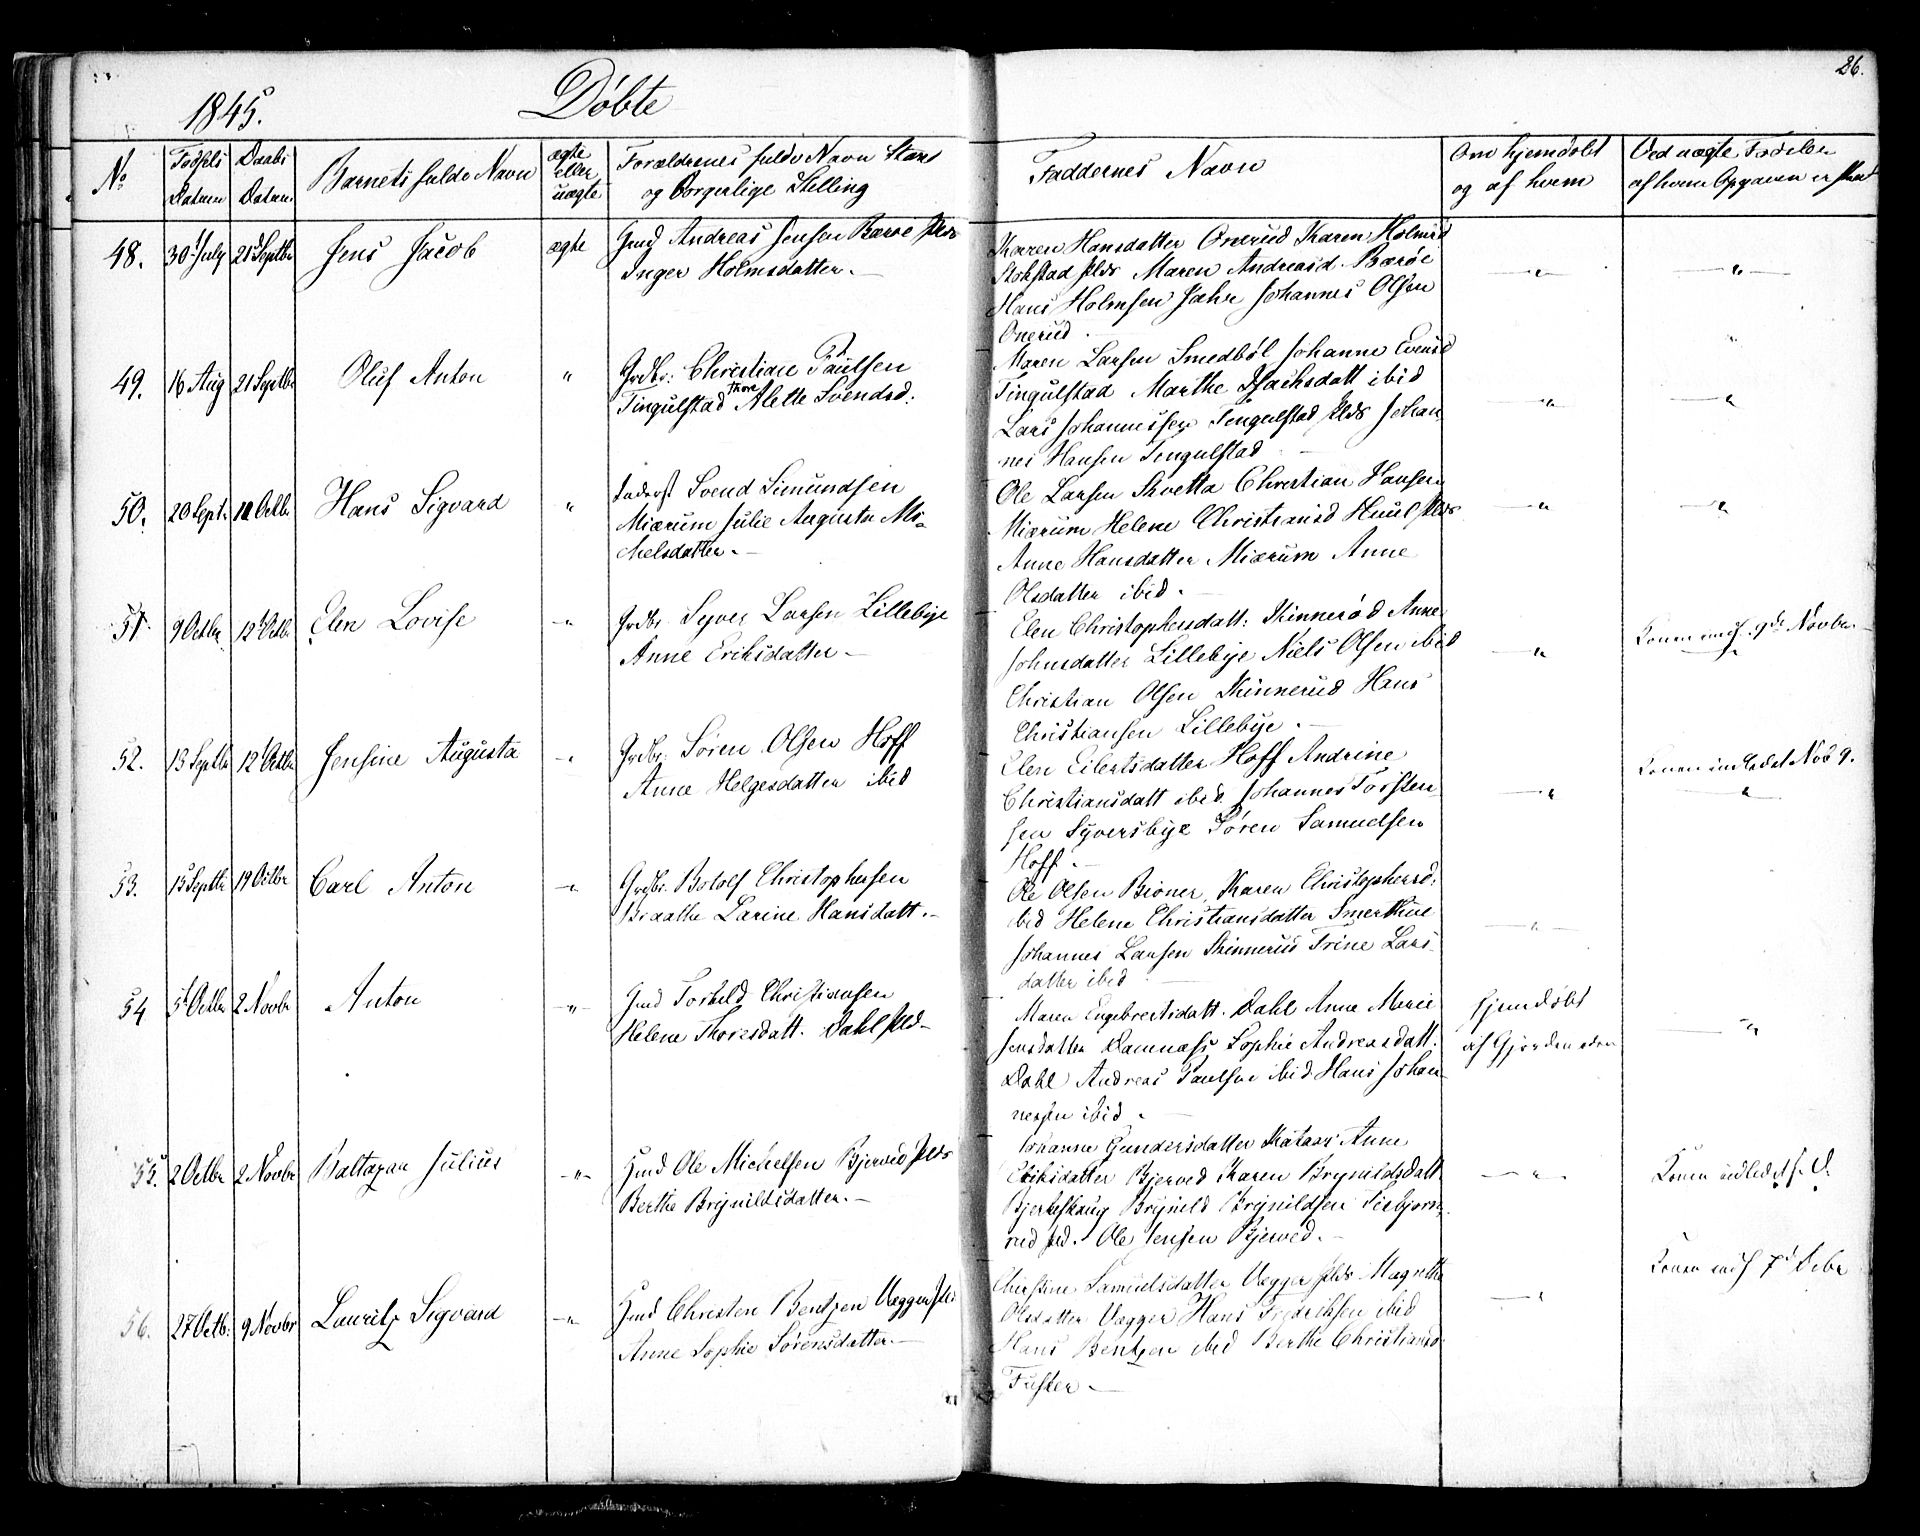 26.
1845. Döbte
No
Födsels Datum
Daabs Datum
Barnets fulde Navn
ægte eller uægte
Forældrenes fulde Navn Stand
og Borgerlige Stilling
Faddernes Navn
Om hjemdöbt
og af hvem
Ved uægte Födsler
af hvem Opgaven er skeet
48. 30 July 21 Septbr Jens Jacob ægte Gmd Andreas Jensen Baröe
Inger Holmsdatter.
Karen Hansdatter Onerud Karen Holmsd
Stokstad Maren Andreasd. Baröe
Hans Holmsen Johannes Olsen
Onerud.
49. 16 Aug 21 Septbr Oluf Anton " Grdbr: Christian Paulsen
Tingulstad Thore Alette Svendsd:
Maren Larsen Smedböl Johanne Evensd
Tingulstad Marthe Isachsdatt ibid
Lars Johannessen Tingulstad Johan
nes Hansen Tingulstad
50. 20 Sept. 12 Octbr Hans Sigvard " Inderst Svend Simundsen
Miærum Julie Augusta Mi-
chelsdatter.
Ole Larsen Christian Hansen
Miærum Helene Christiansd Huul
Anne Hansdatter Miærum Anne
Olsdatter ibid.
51. 9 Octbr 12 Octbr Elen Lovise " Grdbr. Syver Larsen Lillebye
Anne Eriksdatter.
Elen Christophersdatt: Skinneröd Anne
Johnsdatter Lillebye Niels Olsen ibid
Christian Olsen Skinnerud Hans
Christiansen Lillebye.
Konen 9de Novbr.
52. 13 Septbr 12 Octbr Jensine Augusta " Grdbr. Sören Olsen Hoff
Anne Helgesdatter ibid
Elen Eilertsdatter Hoff Andrine
Christiansdatt ibid. Johannes Torsten
sen Syversbye Sören Samuelsen
Hoff.
Konen indledet Nov 9.
53. 15 Septbr 19 Octbr Carl Anton " Grdbr. Botolf Christophersen
Braathe Larine Hansdatt.
Ole Olsen Karen Christophersd:
ibid Helene Christiansdatter
Johannes Larsen Skinnerud Trine Lars
datter ibid
54 5 Octbr 2 Novbr Anton " Gmd Torkild Christiansen
Helene Thoresdatt. Dahl
Maren Engebretsdatt. Dahl Anne Marie
Jensdatter Damnæs Sophie Andreasdatt.
Dahl Andreas Paulsen ibid Hans Johan
nessen ibid.
Hjemdöbt
af Gjordemoderen
55. 2 Octbr 2 Novbr Baltazar Julius " Hmd Ole Michelsen Bjerved
Berthe Brynildsdatter.
Johanne Gundersdatter Anne
Eriksdatter Bjerved Karen Brynildsdatt
Bjerkeskaug Brynild Brynildsen
rud Ole Jensen Bjerved.
Konen indledet s. D.
56. 27 Octb. 9 Novbr Lauritz Sigvard " Hmd Christen Bentzen Vegger
Anne Sophie Sörensdatter.
Samuelsdatter Vegger Magrethe
Olsdatter Vegger Hans Fredriksen ibid
Hans Bentzen ibid Berthe Christiansd
Fuster.
Konen 7d Debr